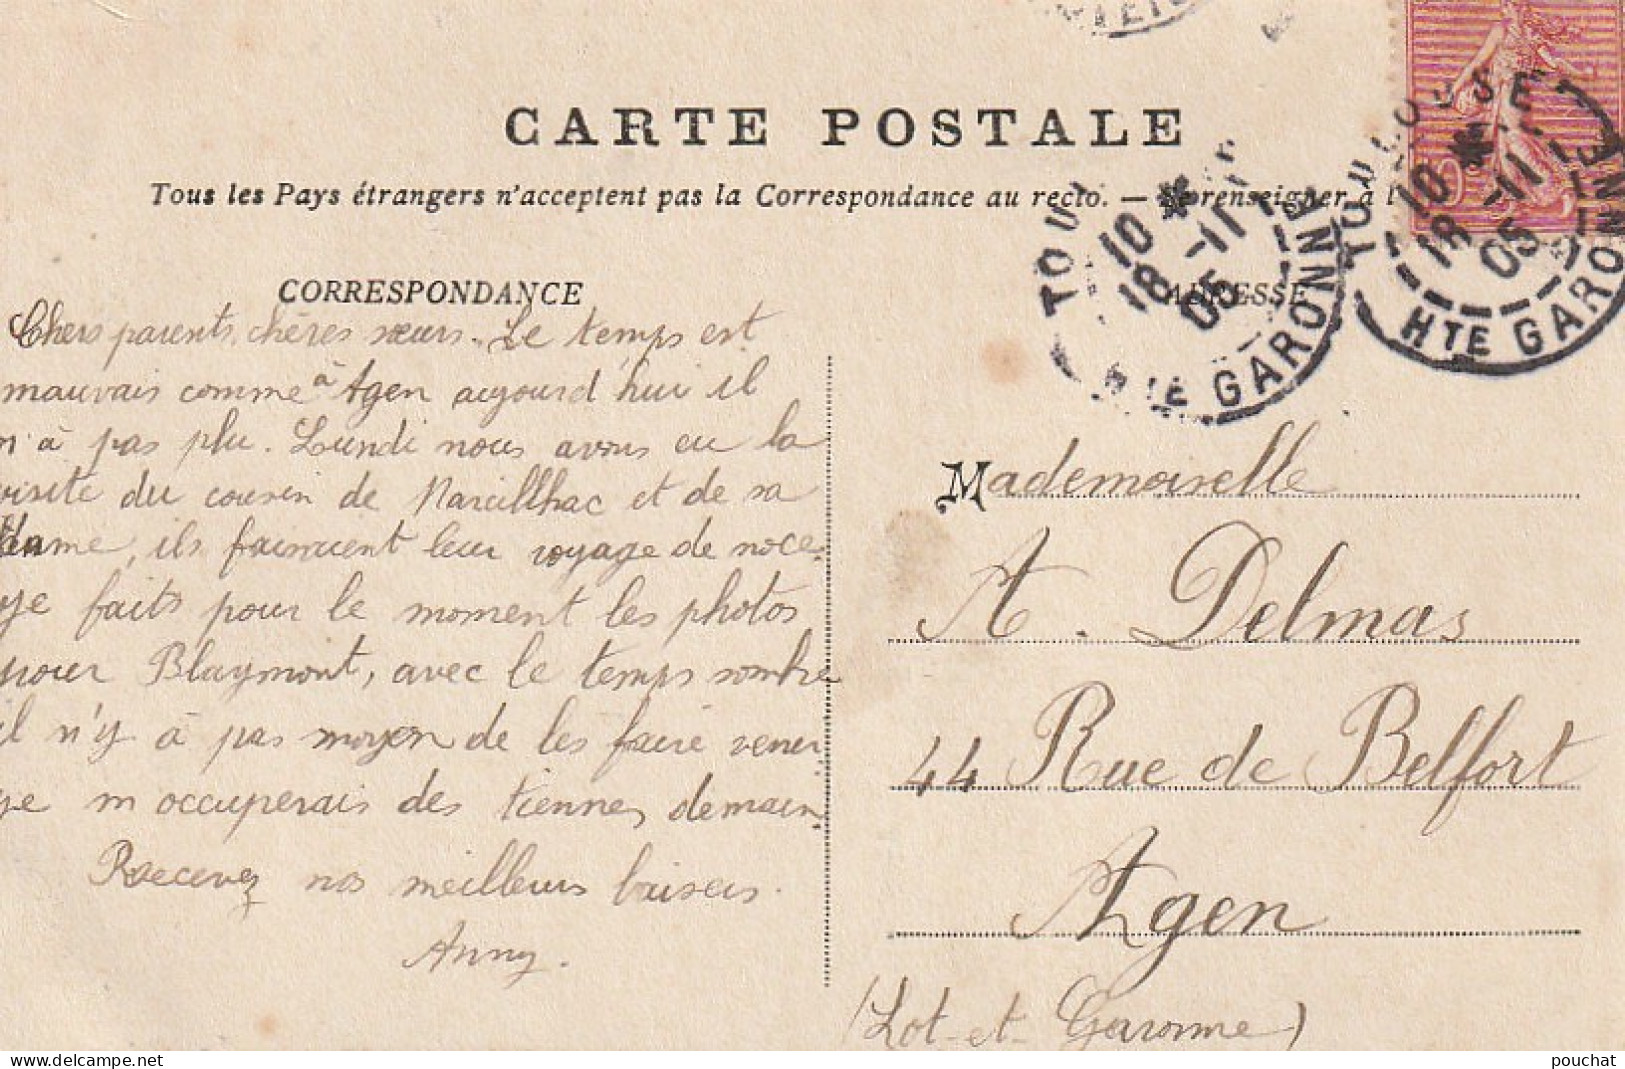 CARTE POSTALE
Tous les Pays étrangers n'acceptent pas la Correspondance au recto. — Se renseigner à l
TOULOUSE
10 *
18 -11
05
HTE GARONNE
TOU
10 *
18 -11
05
HTE GARONNE
CORRESPONDANCE
Chers parents, chères sœurs. Le temps est
mauvais comme à Agen aujourd'hui il
n'à pas plu. Lundi nous avons eu la
visite du cousin de Marcillhac et de sa
dame, ils faisaient leur voyage de noce.
je faits pour le moment les photos
pour Blaymont, avec le temps sombre
il n'y à pas moyen de les faire venir
je m'occuperais des tiennes demain
Recevez nos meilleurs baisers.
Anny.
ADRESSE
Mademoiselle
A. Delmas
44 Rue de Belfort
Agen
(Lot-et-Garonne)
pouchat
www.delcampe.net